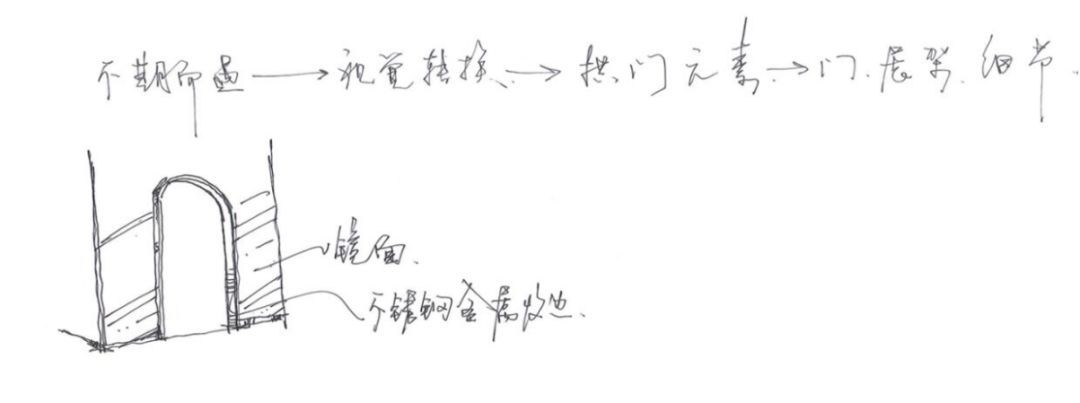 不期而遇→视觉转换→拱门元素→门.展架.细节.
镜面.
不锈钢金属收边.